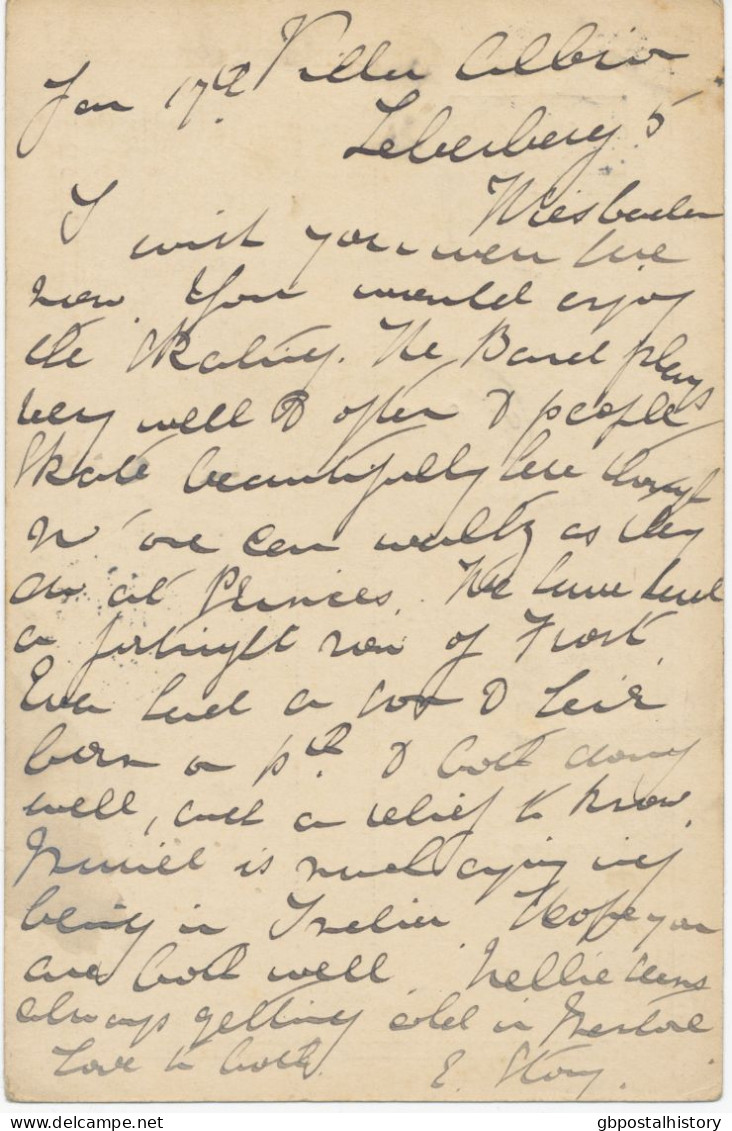 Jan 17th Villa Albion
Leberberg 5
Wiesbaden
I wish you were here
now. You would enjoy
the skating. The Band plays
very well & often & people
skate beautifully here though
no one can waltz as they
do at Princes. We have had
a fortnight now of Frost.
Eva had a son & heir
born on 9th & both doing
well, such a relief to know.
Muriel is much enjoying
being in India. Hope you
are both well. Nellie
always getting cold in
Love to both.
E. Story.
gbpostalhistory